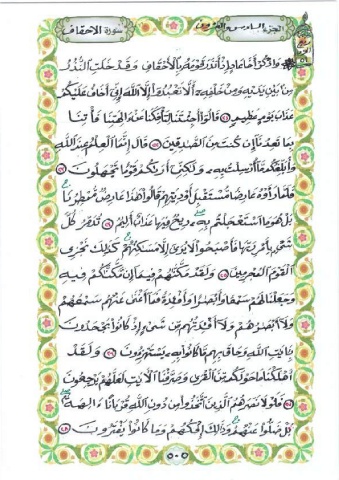 الجزء السادس والعشرون سورة الاحقاف
واذكر أخا عاد إذ أنذر قومه بالأحقاف وقد خلت النذر
من بين يديه ومن خلفه ألا تعبدوا إلا الله إني أخاف عليكم
عذاب يوم عظيم ٢١ قالوا أجئتنا لتأفكنا عن آلهتنا فأتنا
بما تعدنا إن كنت من الصادقين ٢٢ قال إنما العلم عند الله
وأبلغكم ما أرسلت به ولكني أراكم قوما تجهلون ٢٣
فلما رأوه عارضا مستقبل أوديتهم قالوا هذا عارض ممطرنا
بل هو ما استعجلتم به ريح فيها عذاب أليم ٢٤ تدمر كل
شيء بأمر ربها فأصبحوا لا يرى إلا مساكنهم كذلك نجزي
القوم المجرمين ٢٥ ولقد مكناهم فيما إن مكناكم فيه
وجعلنا لهم سمعا وأبصارا وأفئدة فما أغنى عنهم سمعهم
ولا أبصارهم ولا أفئدتهم من شيء إذ كانوا يجحدون
بآيات الله وحاق بهم ما كانوا به يستهزءون ٢٦ ولقد
أهلكنا ما حولكم من القرى وصرفنا الآيات لعلهم يرجعون
٢٧ فلولا نصرهم الذين اتخذوا من دون الله قربانا آلهة
بل ضلوا عنهم وذلك إفكهم وما كانوا يفترون ٢٨
٥٠٥